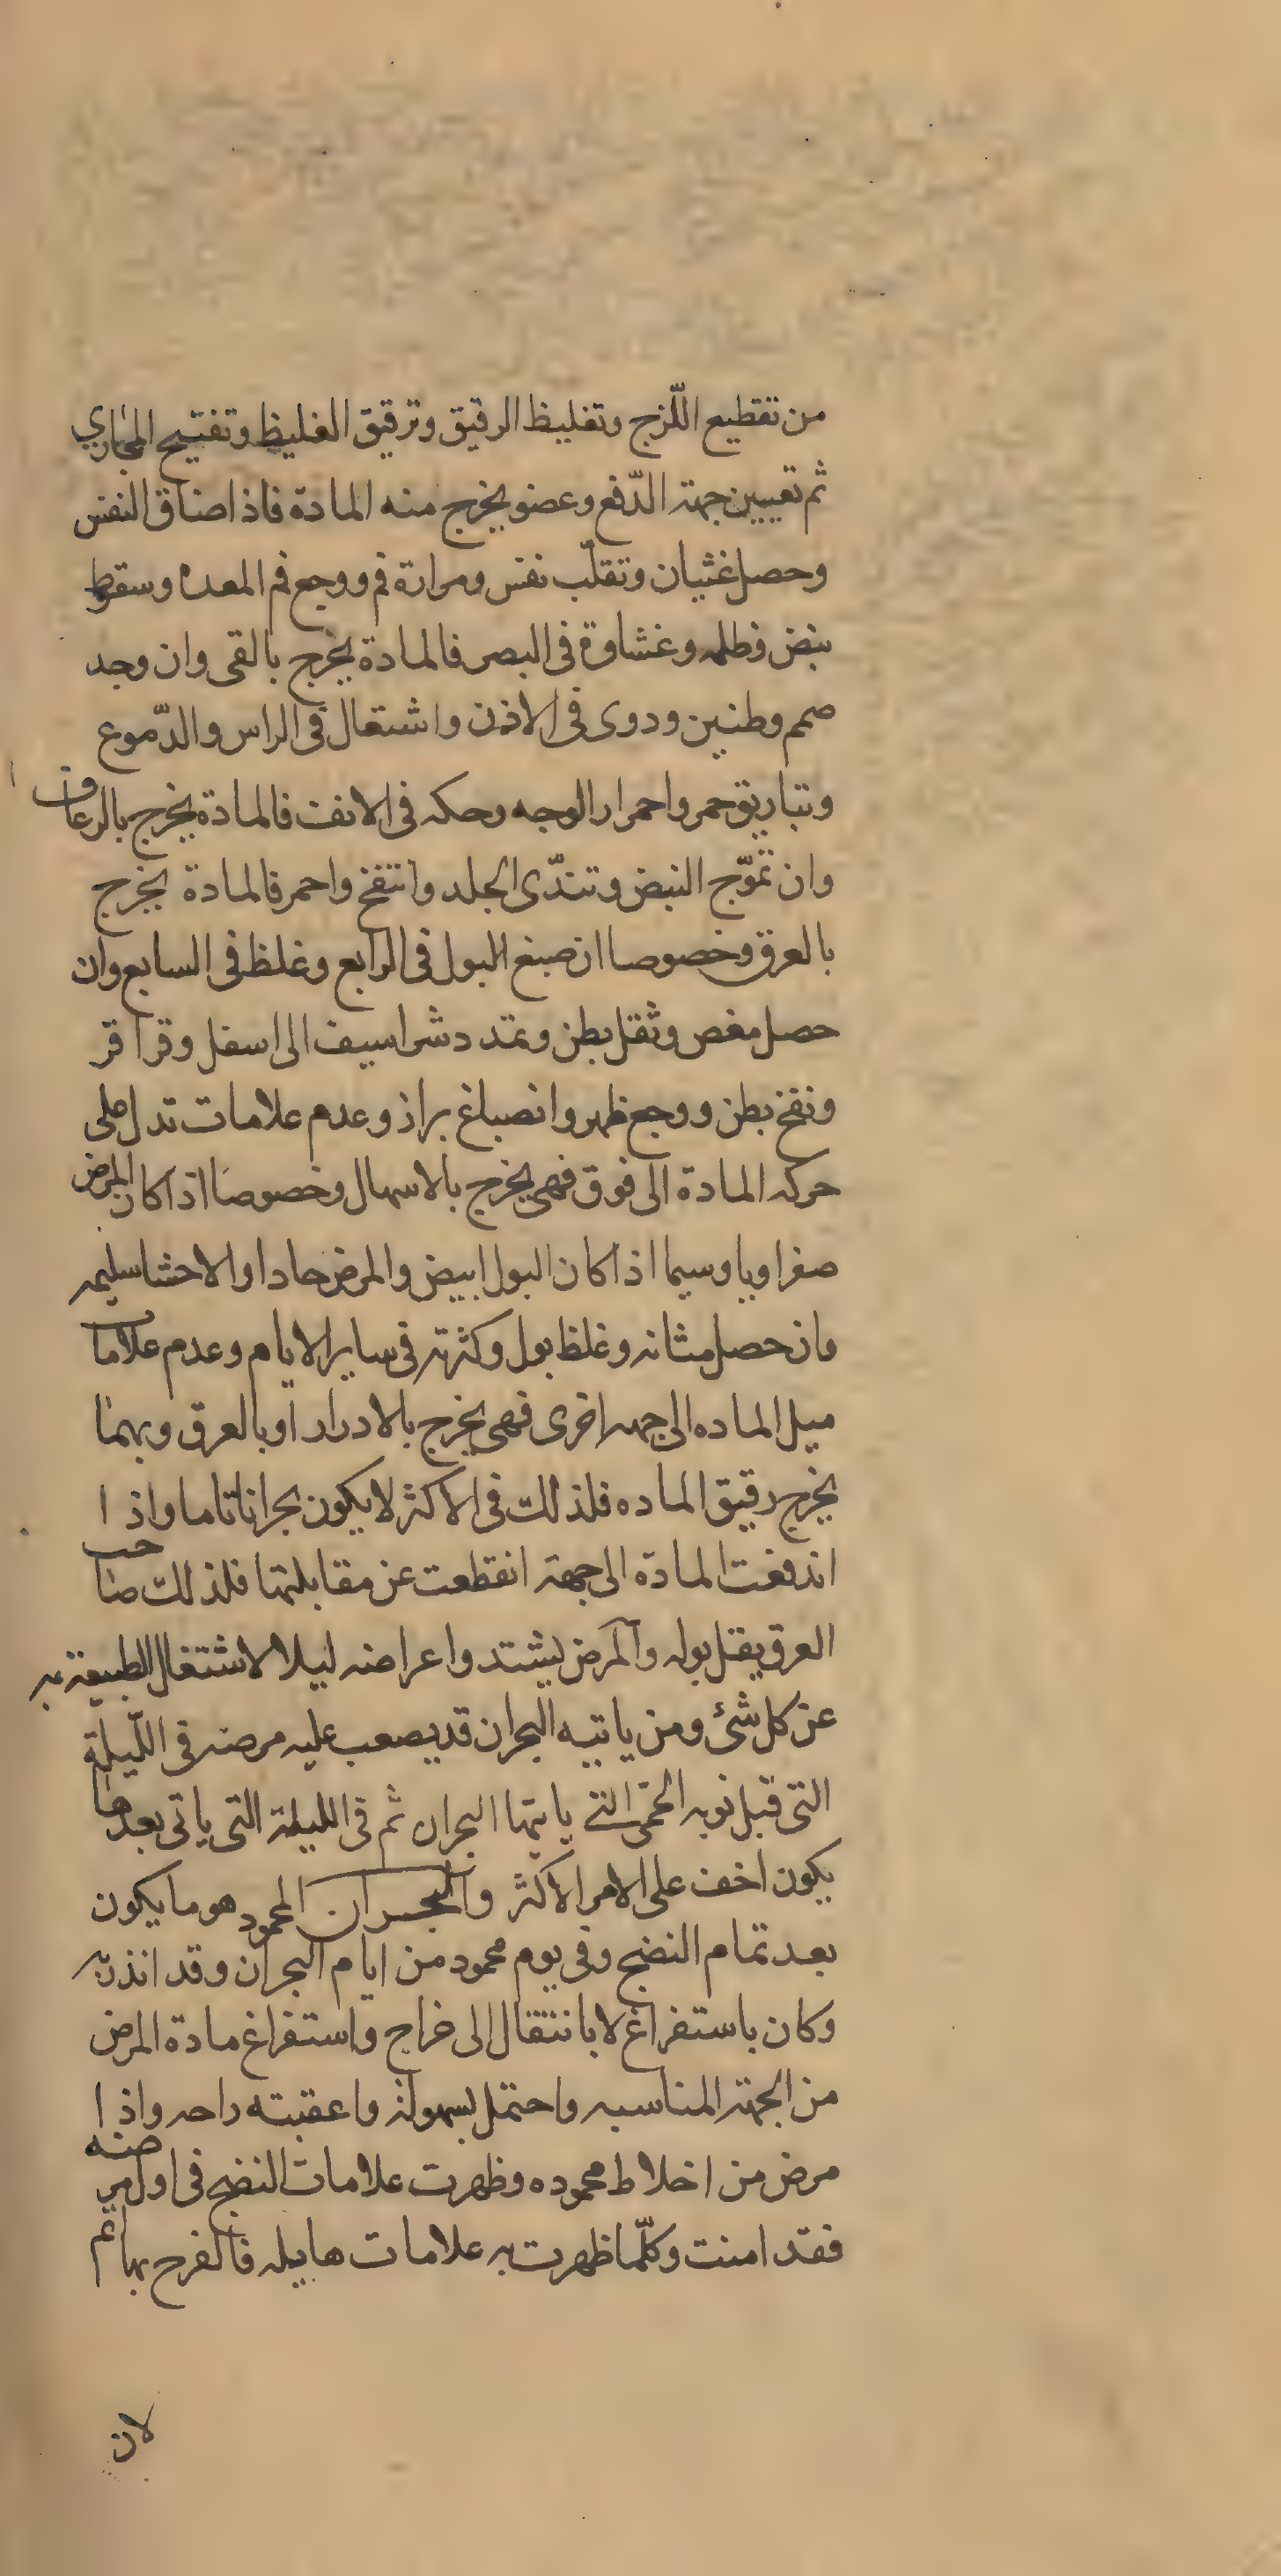 من تقطيع اللّزج وتغليظ الرقيق وترقيق الغليظ وتفتيح المجاري
ثم تعيين جهة الدّفع وعضو يخرج منه المادة فاذا ضاق النفس
وحصل غثيان وتقلّب نفس ومرارة فم ووجع فم المعده وسقوط
نبض وظلمه وغشاوة فى البصر فالمادة يخرج بالقى وان وجد
صمم وطنين ودوى فى الاذن واشتعال فى الراس والدّموع
وتباريق حمر واحمرار الوجه وحكه فى الانف فالمادة يخرج بالرعاف
وان تموّج النبض وتندّى الجلد وانتفخ واحمر فالمادة يخرج
بالعرق وخصوصا ان صبغ البول فى الرابع وغلظ فى السابع وان
حصل مغص وثقل بطن وتمدد شراسيف الى اسفل وقراقر
ونفخ بطن ووجع ظهر وانصباغ براز وعدم علامات تدل على
حركه المادة الى فوق فهى يخرج بالاسهال وخصوصا اذا كان المرض
صفراويا وسيما اذا كان البول ابيض والمرض حادا والاحشا سليمه
وان حصل مثانه وغلظ بول وكثرته فى ساير الايام وعدم علامات
ميل الماده الى جهه اخرى فهى يخرج بالادرار او بالعرق وبهما
يخرج رقيق الماده فلذلك فى الاكثر لا يكون بحرانا تاما واذا
اندفعت المادة الى جهة انقطعت عن مقابلتها فلذلك صاحب
العرق يقل بوله والمرض يشتد واعراضه ليلا لاشتغال الطبيعة به
عن كل شئ ومن ياتيه البحران قد يصعب عليه مرضه فى اللّيلة
التى قبل نوبه الحمّى التى ياتيها البحران ثم فى الليلة التى ياتى بعدها
يكون اخف على الامر الاكثر والبحران المحمود هو ما يكون
بعد تمام النضج وفى يوم محمود من ايام البحران وقد انذر به
وكان باستفراغ لا بانتقال الى خراج واستفراغ مادة المرض
من الجهة المناسبه واحتمل بسهولة واعقبته راحه واذا
مرض من اخلاط محموده وظهرت علامات النضج فى اول مرضه
فقد امنت وكلّما ظهرت به علامات هايله فالفرح بها اتم
لان